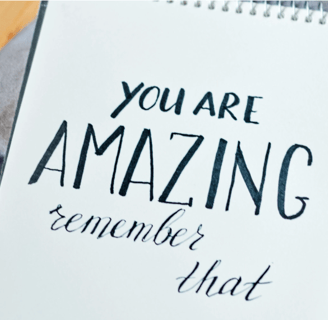 YOU ARE
AMAZING
remember
that